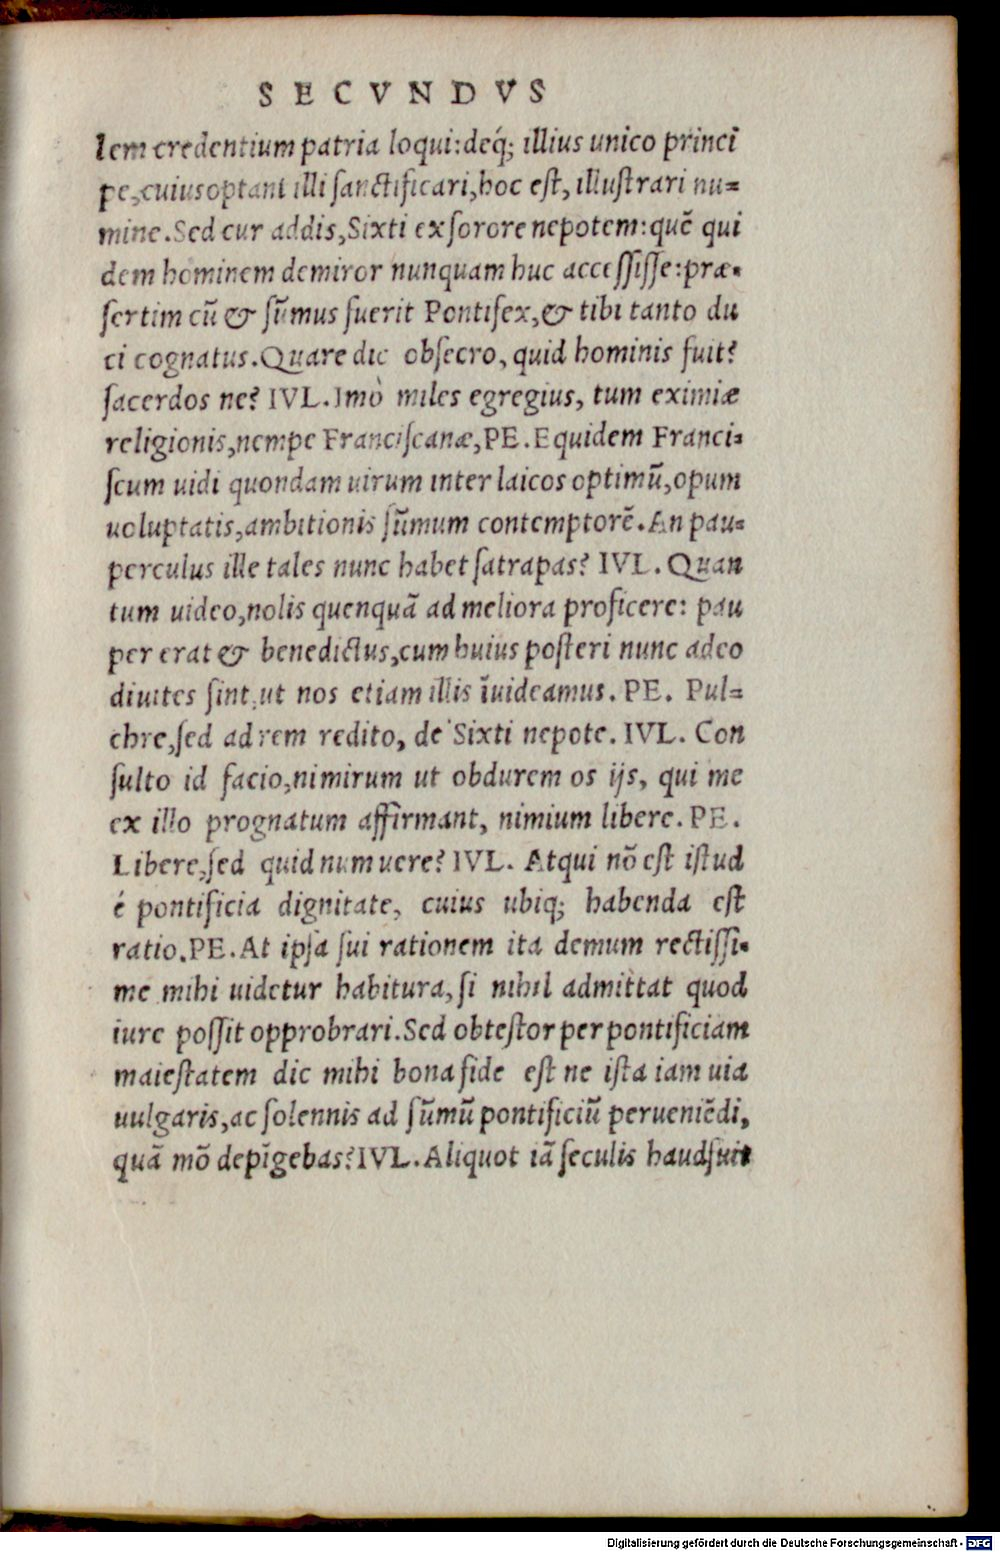 SECVNDVS
lem credentium patria loqui: deq́; illius unico princi
pe, cuius optant illi sanctificari, hoc est, illustrari nu=
mine. Sed cur addis, Sixti ex sorore nepotem: quē qui
dem hominem demiror nunquam huc accessisse: præ=
sertim cū & sūmus fuerit Pontifex, & tibi tanto du
ci cognatus. Quare dic obsecro, quid hominis fuit?
sacerdos ne? IVL. Imò miles egregius, tum eximiæ
religionis, nempe Franciscanæ, PE. Equidem Franci=
scum uidi quondam uirum inter laicos optimū, opum
uoluptatis, ambitionis sūmum contemptorē. An pau=
perculus ille tales nunc habet satrapas? IVL. Quan
tum uideo, nolis quenquā ad meliora proficere: pau
per erat & benedictus, cum huius posteri nunc adeo
diuites sint, ut nos etiam illis īuideamus. PE. Pul=
chre, sed ad rem redito, de Sixti nepote. IVL. Con
sulto id facio, nimirum ut obdurem os ijs, qui me
ex illo prognatum affirmant, nimium libere. PE.
Libere, sed quid num uere? IVL. Atqui nō est istud
é pontificia dignitate, cuius ubiq; habenda est
ratio. PE. At ipsa sui rationem ita demum rectissi=
me mihi uidetur habitura, si nihil admittat quod
iure possit opprobrari. Sed obtestor per pontificiam
maiestatem dic mihi bona fide est ne ista iam uia
uulgaris, ac solennis ad sūmū pontificiū perueniēdi,
quā mō depīgebas? IVL. Aliquot iā seculis haud fuit
Digitalisierung gefördert durch die Deutsche Forschungsgemeinschaft - DFG